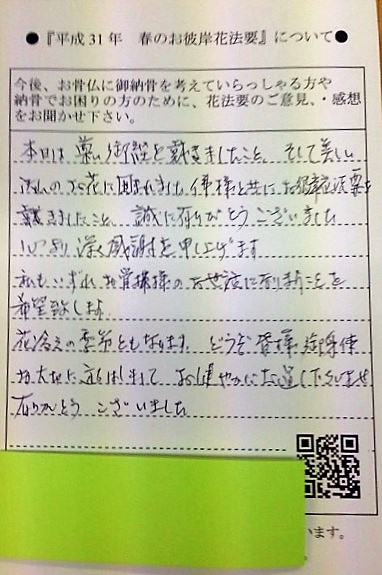 ●『平成31年　春のお彼岸花法要』について●
今後、お骨仏に御納骨を考えていらっしゃる方や
納骨でお困りの方のために、花法要のご意見、・感想
をお聞かせ下さい。
本日は 御経を戴きましたこと、そして美しい
沢山のお花に囲まれました 様と共に お
戴きましたこと、誠に有りがとうございました
心より深く感謝を申し上げます
私もいずれ お骨佛様のお世話に なりますことを
希望致します
花冷えの季節ともなります どうぞ皆様 御身体
お大切に お健やかにお過し下さいませ
有りがとう ございました
います。